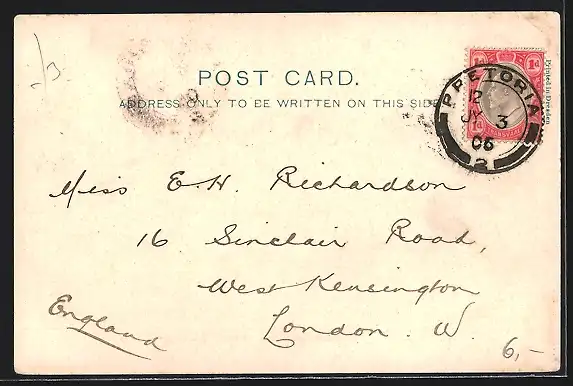 POST CARD.
ADDRESS ONLY TO BE WRITTEN ON THIS SIDE
Printed in Dresden
1d 1d
TRANSVAAL
1d
PRETORIA
2
JY 3
06
2
/3
Miss E. H. Richardson
16 Sinclair Road,
West Kensington
London. W.
England
6,-